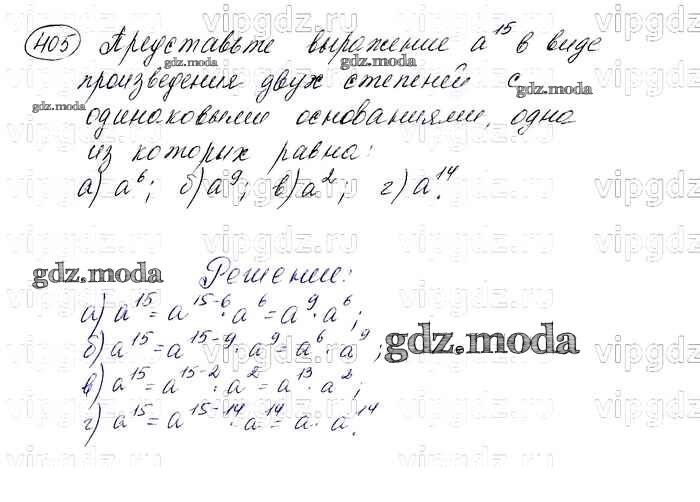 405 Представьте выражение a¹⁵ в виде
произведения двух степеней с
одинаковыми основаниями, одна
из которых равна:
а) a⁶; б) a⁹; в) a²; г) a¹⁴.
Решение:
а) a¹⁵ = a¹⁵⁻⁶ · a⁶ = a⁹ · a⁶;
б) a¹⁵ = a¹⁵⁻⁹ · a⁹ = a⁶ · a⁹;
в) a¹⁵ = a¹⁵⁻² · a² = a¹³ · a²;
г) a¹⁵ = a¹⁵⁻¹⁴ · a¹⁴ = a · a¹⁴.
gdz.moda
gdz.moda
gdz.moda
gdz.moda
gdz.moda
gdz.moda
vipgdz.ru